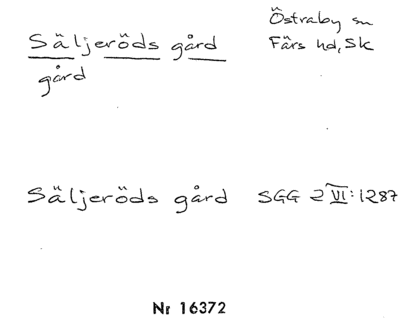 Säljeröds gård
gård
Östraby sn
Färs hd, Sk
Säljeröds gård SGG 2 VI:1287
Nr 16372